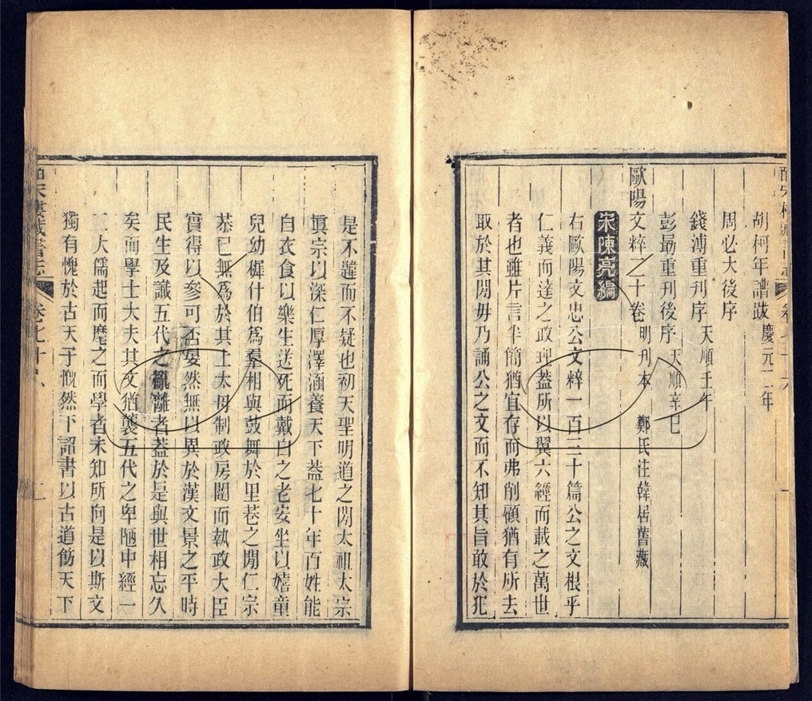 胡柯年譜跋 慶元二年
周必大後序
錢溥重刊序 天順壬午
彭勗重刊後序 天順辛巳
歐陽文粹二十卷 明刊本 鄭氏注韓居舊藏
宋陳亮編
右歐陽文忠公文粹一百三十篇公之文根乎
仁義而達之政理蓋所以翼六經而載之萬世
者也雖片言半簡猶宜存而弗削顧猶有所去
取於其閒毋乃誦公之文而不知其旨敢於犯
是不韙而不疑也初天聖明道之閒太祖太宗
眞宗以深仁厚澤涵養天下蓋七十年百姓能
自衣食以樂生送死而戴白之老安坐以嬉童
兒幼穉什伯爲羣相與鼓舞於里巷之閒仁宗
恭已無爲於其上太母制政房闥而執政大臣
實得以參可否晏然無以異於漢文景之平時
民生及識五代之亂離者蓋於是與世相忘久
矣而學士大夫其文猶襲五代之卑陋中經一
二大儒起而麾之而學者未知所向是以斯文
獨有愧於古天子慨然下詔書以古道飭天下
宋樓藏書志 卷七十 二